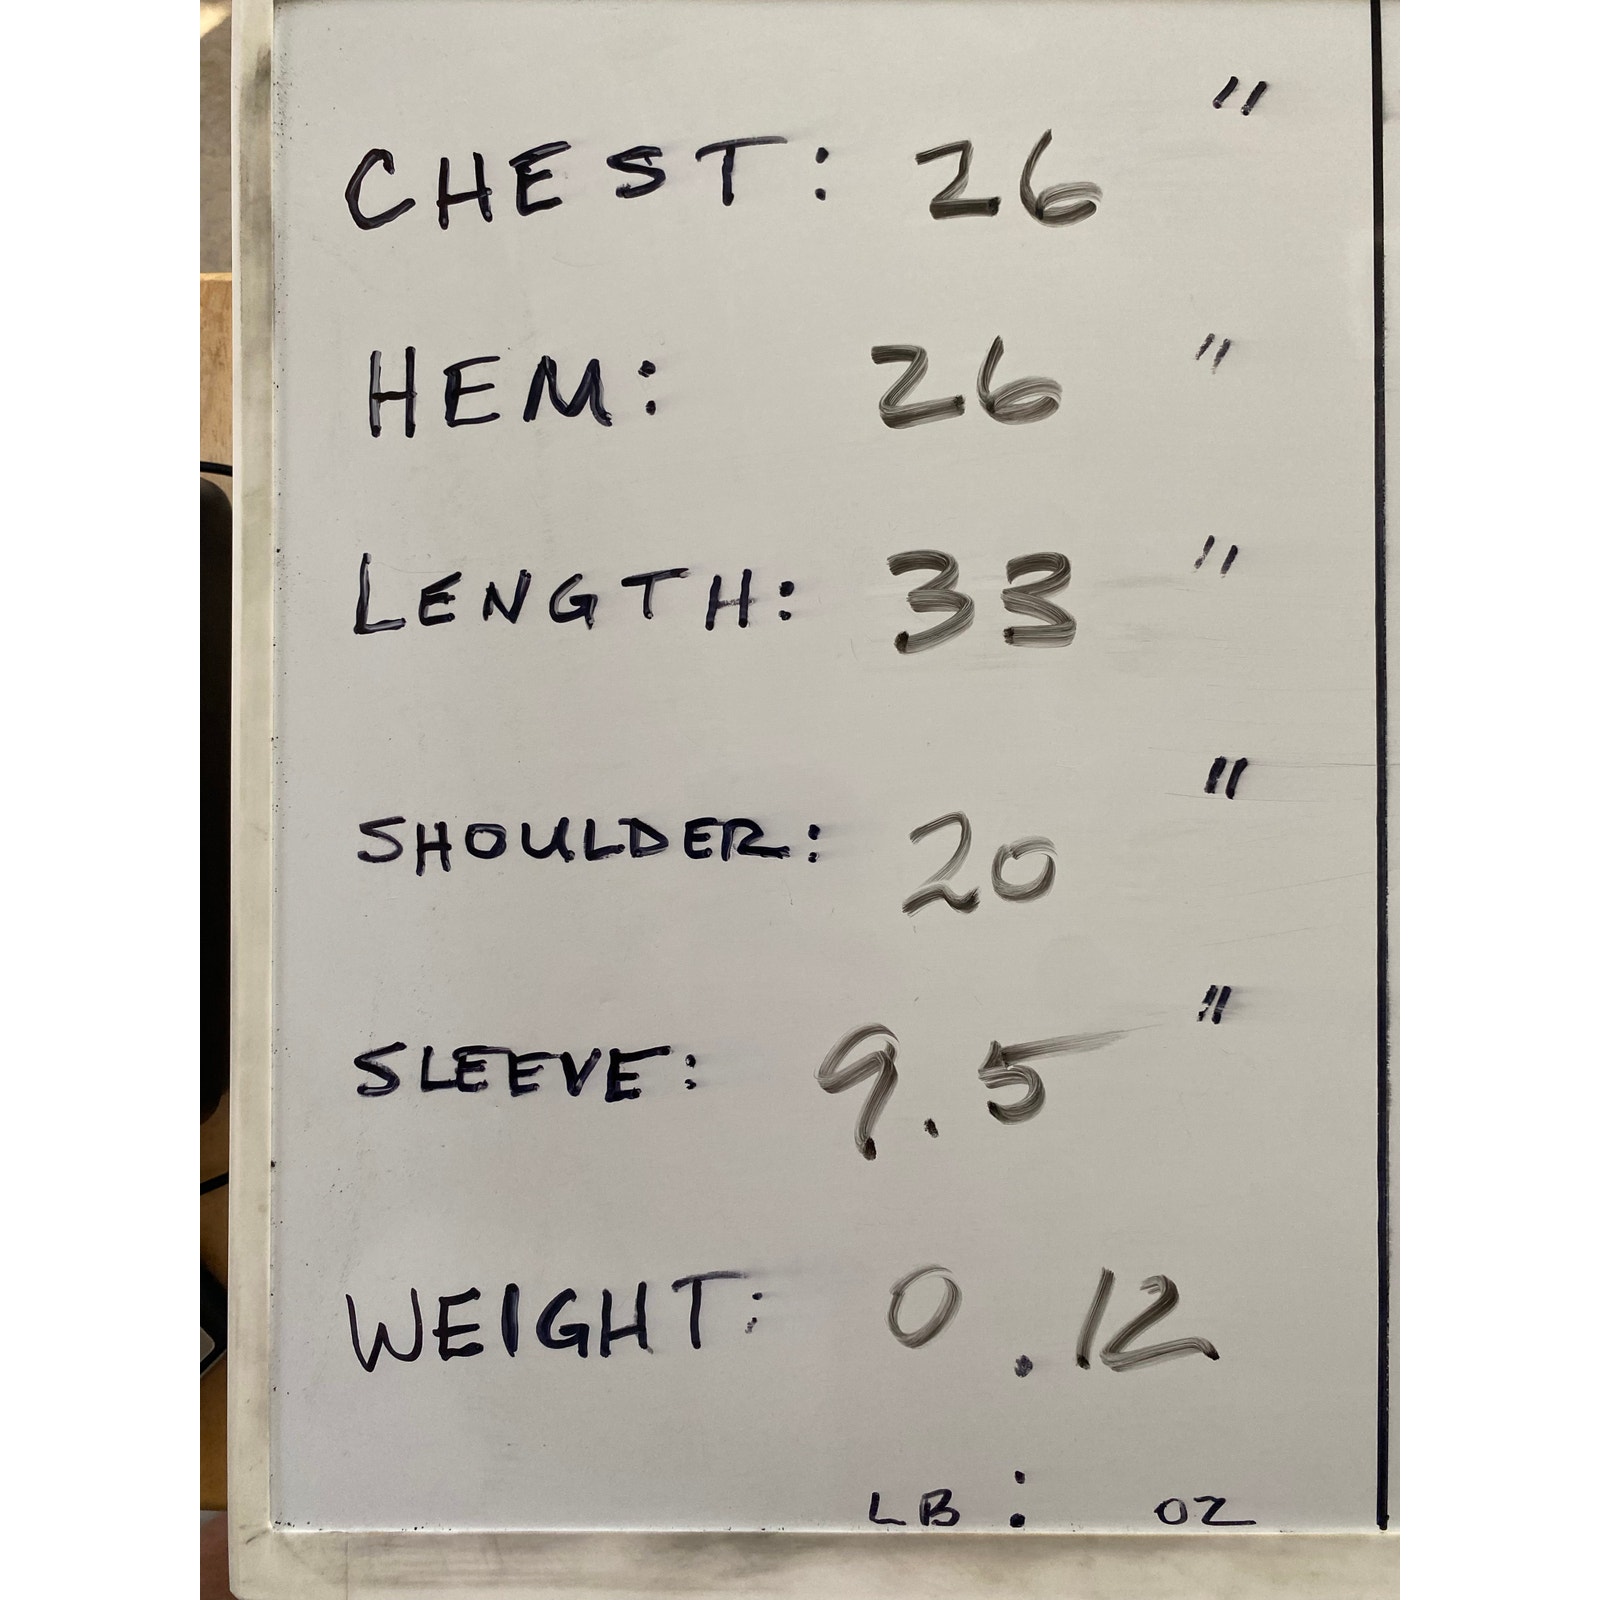 CHEST: 26"
HEM: 26"
LENGTH: 33"
SHOULDER: 20"
SLEEVE: 9.5"
WEIGHT: 0.12
LB : OZ